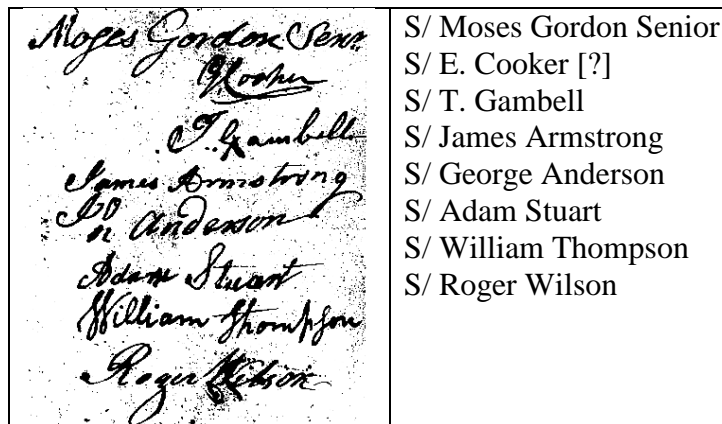 Moses Gordon Senr.
T. Gambell
James Armstrong
Anderson
Adam Stuart
William Thompson
Roger Wilson
S/ Moses Gordon Senior
S/ E. Cooker [?]
S/ T. Gambell
S/ James Armstrong
S/ George Anderson
S/ Adam Stuart
S/ William Thompson
S/ Roger Wilson